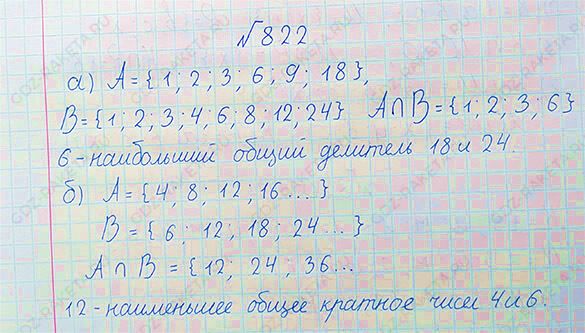 №822
а) A = {1; 2; 3; 6; 9; 18},
B = {1; 2; 3; 4; 6; 8; 12; 24} A∩B = {1; 2; 3; 6}
6 - наибольший общий делитель 18 и 24.
б) A = {4; 8; 12; 16 ... }
B = {6; 12; 18; 24 ... }
A ∩ B = {12; 24; 36...
12 - наименьшее общее кратное чисел 4 и 6.
GDZ-RAKETA.RU